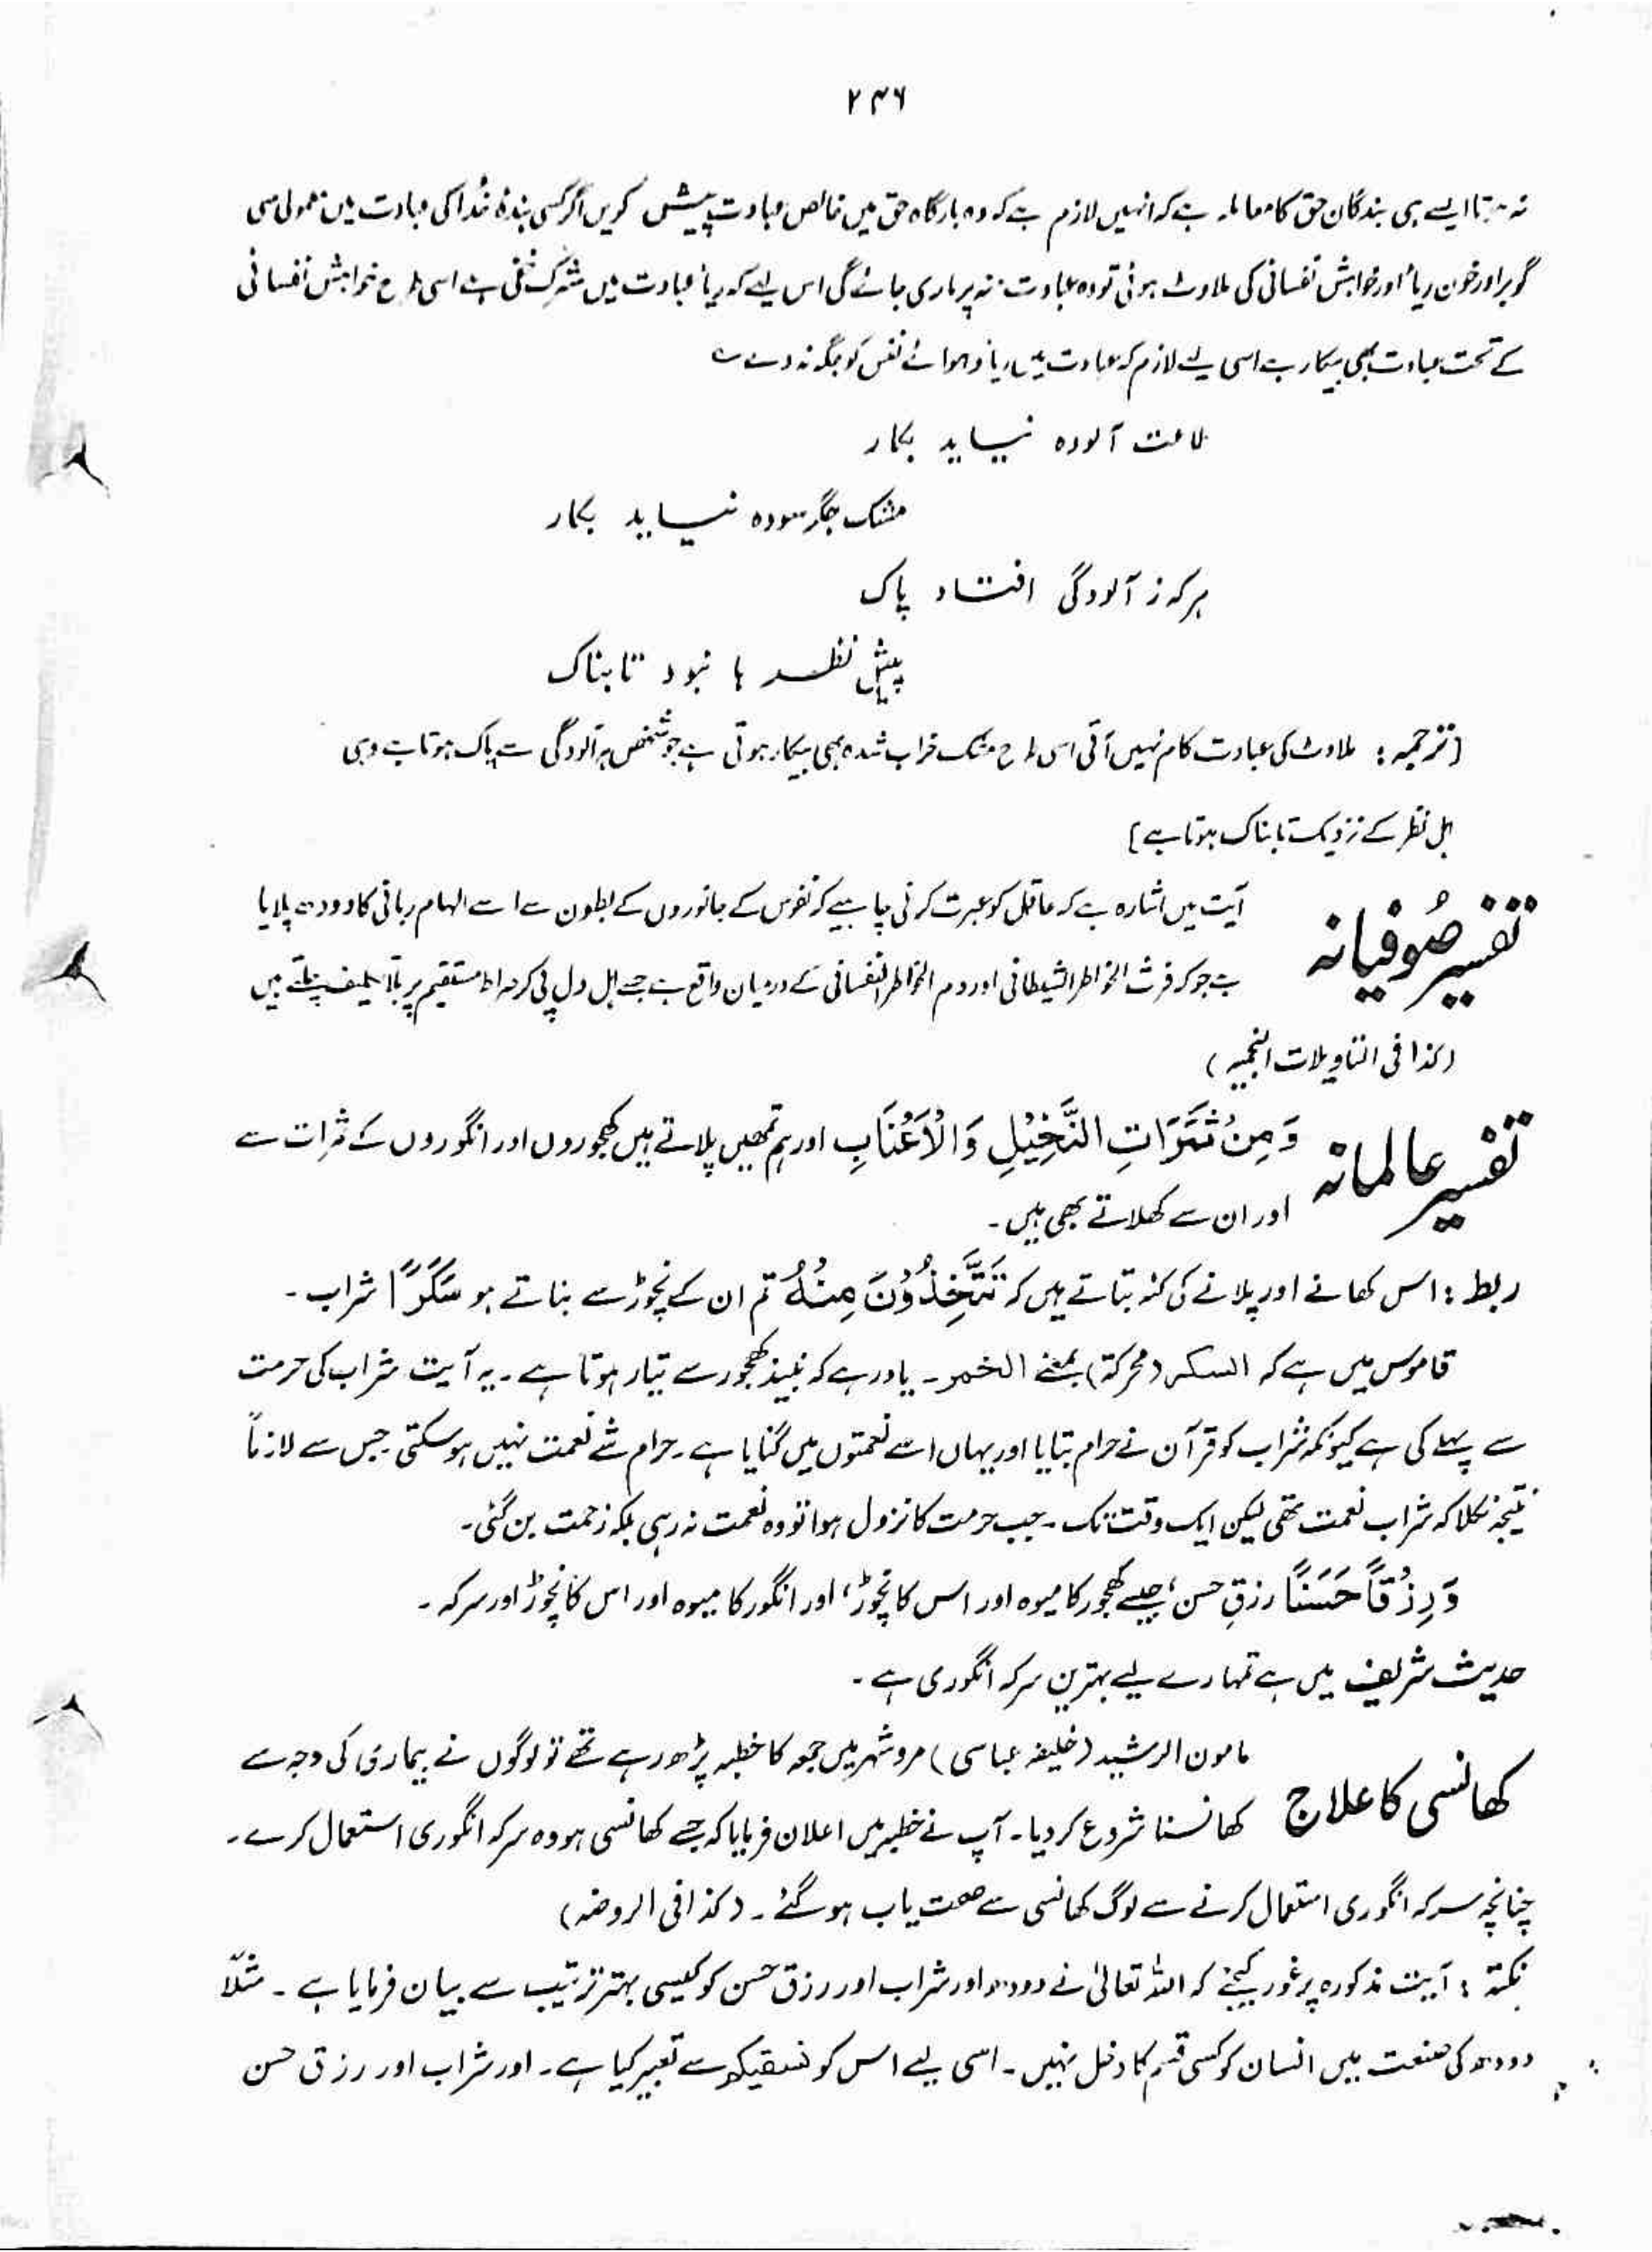 ۲۴۶
نہ ہوتا ایسے ہی بندگان حق کا معاملہ ہے کہ انہیں لازم ہے کہ وہ بارگاہ حق میں خالص عبادت پیش کریں اگر کسی بندۂ خدا کی عبادت میں معمولی سی
گوبر اور خون ریأ اور خواہش نفسانی کی ملاوٹ ہوئی تو وہ عبادت منہ پر ماری جائے گی اس لیے کہ ریأ عبادت میں شرک خفی ہے اسی طرح خواہش نفسانی
کے تحت عبادت بھی بیکار ہے اسی لیے لازم کہ عبادت میں ریأ و ہوائے نفس کو جگہ نہ دے ؎
طاعت آلودہ نیاید بکار
مشک جگر سودہ نیاید بکار
ہر کہ ز آلودگی افتاد پاک
پیش نظر ہا نبود تابناک
[ترجمہ : ملاوٹ کی عبادت کام نہیں آتی اسی طرح مشک خراب شدہ بھی بیکار ہوتی ہے جو شخص ہر آلودگی سے پاک ہوتا ہے وہی
اہل نظر کے نزدیک تابناک ہوتا ہے]
تفسیر صُوفیانہ آیت میں اشارہ ہے کہ عاقل کو عبرت کرنی چاہیے کہ نفوس کے جانوروں کے بطون سے اسے الہام ربانی کا دودھ پلایا
ہے جو کہ فرث الخواطر الشیطانی اور دم الخواطر النفسانی کے درمیان واقع ہے جسے اہل دل پی کر صراط مستقیم پر بلا تکلیف چلتے ہیں
(کذا فی التاویلات النجمیہ)
تفسیر عالمانہ وَمِنْ ثَمَرَاتِ النَّخِيْلِ وَالْاَعْنَابِ اور ہم تمھیں پلاتے ہیں کھجوروں اور انگوروں کے ثمرات سے
اور ان سے کھلاتے بھی ہیں۔
ربط : اس کھانے اور پلانے کی کنہ بتاتے ہیں کہ تَتَّخِذُوْنَ مِنْهُ تم ان کے نچوڑ سے بناتے ہو سَكَرًا شراب۔
قاموس میں ہے کہ السکر (محرکۃ) بمعنے الخمر۔ یاد رہے کہ نبیذ کھجور سے تیار ہوتا ہے۔ یہ آیت شراب کی حرمت
سے پہلے کی ہے کیونکہ شراب کو قرآن نے حرام بتایا اور یہاں اسے نعمتوں میں گنایا ہے۔ حرام شے نعمت نہیں ہو سکتی جس سے لازماً
نتیجہ نکلا کہ شراب نعمت تھی لیکن ایک وقت تک۔ جب حرمت کا نزول ہوا تو وہ نعمت نہ رہی بلکہ زحمت بن گئی۔
وَرِزْقًا حَسَنًا رزقِ حسن، جیسے کھجور کا میوہ اور اس کا نچوڑ، اور انگور کا میوہ اور اس کا نچوڑ اور سرکہ۔
حدیث شریف میں ہے تمہارے لیے بہترین سرکہ انگوری ہے۔
کھانسی کا علاج مامون الرشید (خلیفہ عباسی) مرو شہر میں جمعہ کا خطبہ پڑھ رہے تھے تو لوگوں نے بیماری کی وجہ سے
کھانسنا شروع کر دیا۔ آپ نے خطبہ میں اعلان فرمایا کہ جسے کھانسی ہو وہ سرکہ انگوری استعمال کرے۔
چنانچہ سرکہ انگوری استعمال کرنے سے لوگ کھانسی سے صحت یاب ہو گئے۔ (کذا فی الروضہ)
نکتہ : آیت مذکورہ پر غور کیجئے کہ اللہ تعالیٰ نے دودھ اور شراب اور رزق حسن کو کیسی بہتر ترتیب سے بیان فرمایا ہے۔ مثلاً
دودھ کی صنعت میں انسان کو کسی قسم کا دخل نہیں۔ اسی لیے اس کو نسقیکم سے تعبیر کیا ہے۔ اور شراب اور رزق حسن